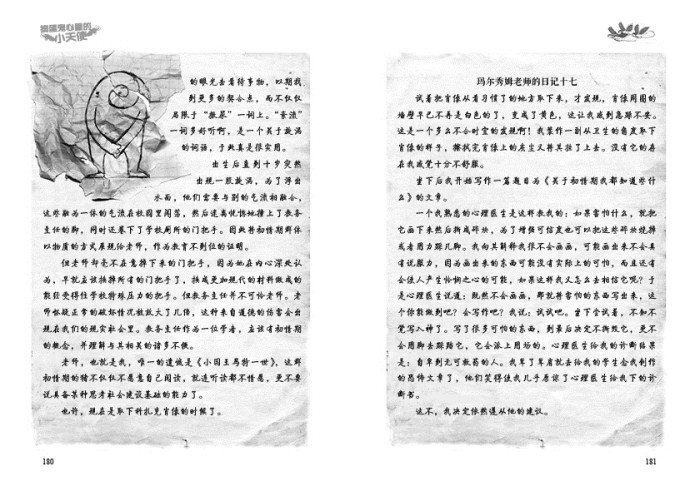 小天使
的眼光去看待事物，以期找
到更多的契合点，而不仅仅
局限于“尴尬”一词上。“吝流”
一词多好听啊，是一个关于漩涡
的词语，于教真是很实用。
出生后直到十步突然
出现一股漩涡，为了浮出
水面，他们需要与别的气流相融合，
这些融为一体的气流在校园里闲荡，然后近离恍惚地撞上了教务
主任的脚，同时还卷下了学校厕所的门把手。因此将初情期群体
以物质的方式展现给老师，作为教育不到位的证明。
但老师却毫不在意掉下来的门把手，因为她在内心深处认
为，早就应该换掉所有的门把手了，换成更加现代的材料做成的
能经受得住学校特殊压力的把手。但教务主任并不可怜老师。老
师怀疑正常的破坏情况被放大了几倍，这种来自道德的伤害会出
现在我们的现实社会里。教务主任作为一位学者，应该有初情期
的概念，并理解与其相关的诸多不便。
老师，也就是我，唯一的遗憾是《小国王马特一世》，这群
初情期的猪不仅仅不愿意自己阅读，就连听读都不情愿，更不要
说具备某种思考社会建设基础的能力了。
也许，现在是取下科扎克肖像的时候了。
180
玛尔秀姆老师的日记十七
试着把肖像从看习惯了的地方取下来，才发现，肖像周围的
墙壁早已不再是白色的了，变成了黄色，这让我感到急躁不安。
这是一个多么不合时宜的发现啊！我装作一副从卫生的角度取下
肖像的样子，擦拭完肖像上的灰尘又将其挂了上去。没有它的存
在我感觉十分不舒服。
坐下后我开始写作一篇题目为《关于初情期我都知道些什
么》的文章。
一个我熟悉的心理医生是这样教我的：如果害怕什么，就把
它画下来然后撕成碎块，为了增强可信度也可以把这些碎块烧掉
或者用力踩几脚。我向其解释我很不会画画，可能画出来不会具
有说服力，因为画出来的东西可能没有实际上的可怕，而且还有
会使人产生怜悯之心的可能，如果这样我又怎么去相信它呢？于
是心理医生说道：既然不会画画，那就将害怕的东西写出来，这
个你能做到吧？会写作吧？我说：试试吧。坐下尝试着，不知不
觉写入神了。写了很多可怕的东西，到最后决定不撕毁它，更不
会用脚去踩踏它，它会派上用场的。心理医生给我的诊断结果
是：自卑到无可救药的人。我耸了耸肩就去给我的学生念我创作
的恐怖文章了，他们笑得使我几乎原谅了心理医生给我下的诊
断书。
这不，我决定依然遵从他的建议。
181